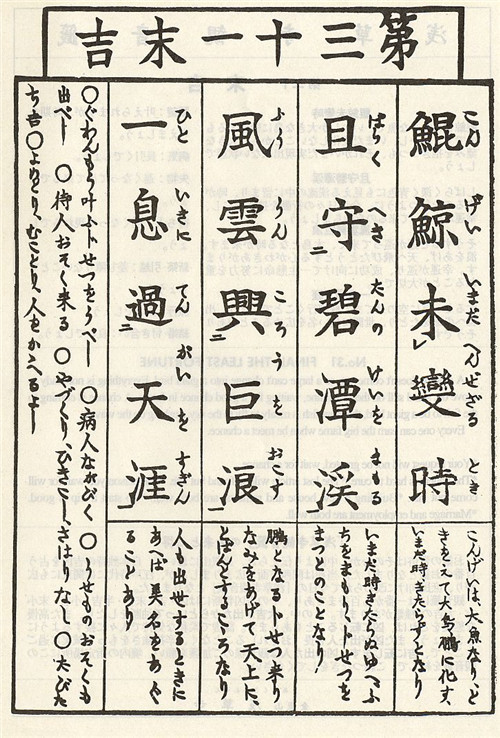 第三十一末吉
鯤鯨未變時
こん げい いまだ へんせざる とき
且守碧潭渓
風雲興巨浪
一息過天涯
ひと いき てん がいを すぎん
こんげいは、大魚なり、と
きをえて大鳥鵬に化す、
いまだ時きたらずとなり
いまだ時きたらぬゆへふ
ちをまもりじせつを
まつとのことなり
鵬となるじせつ来り
なみをあげて天上に、
とばんとすとなり
人も出世するときに
あへば天がいをすぐ
ることありと也
〇ぐわんもう叶ふじせつをうべし 〇病人ながびく 〇うせものおそくも
出べし 〇待人おそく来る 〇やづくり、ひきこし、さはりなし 〇たびだ
ち吉 〇よめとり、むことり、人をかかへるよし
No.31 FINALLY THE LEAST FORTUNE